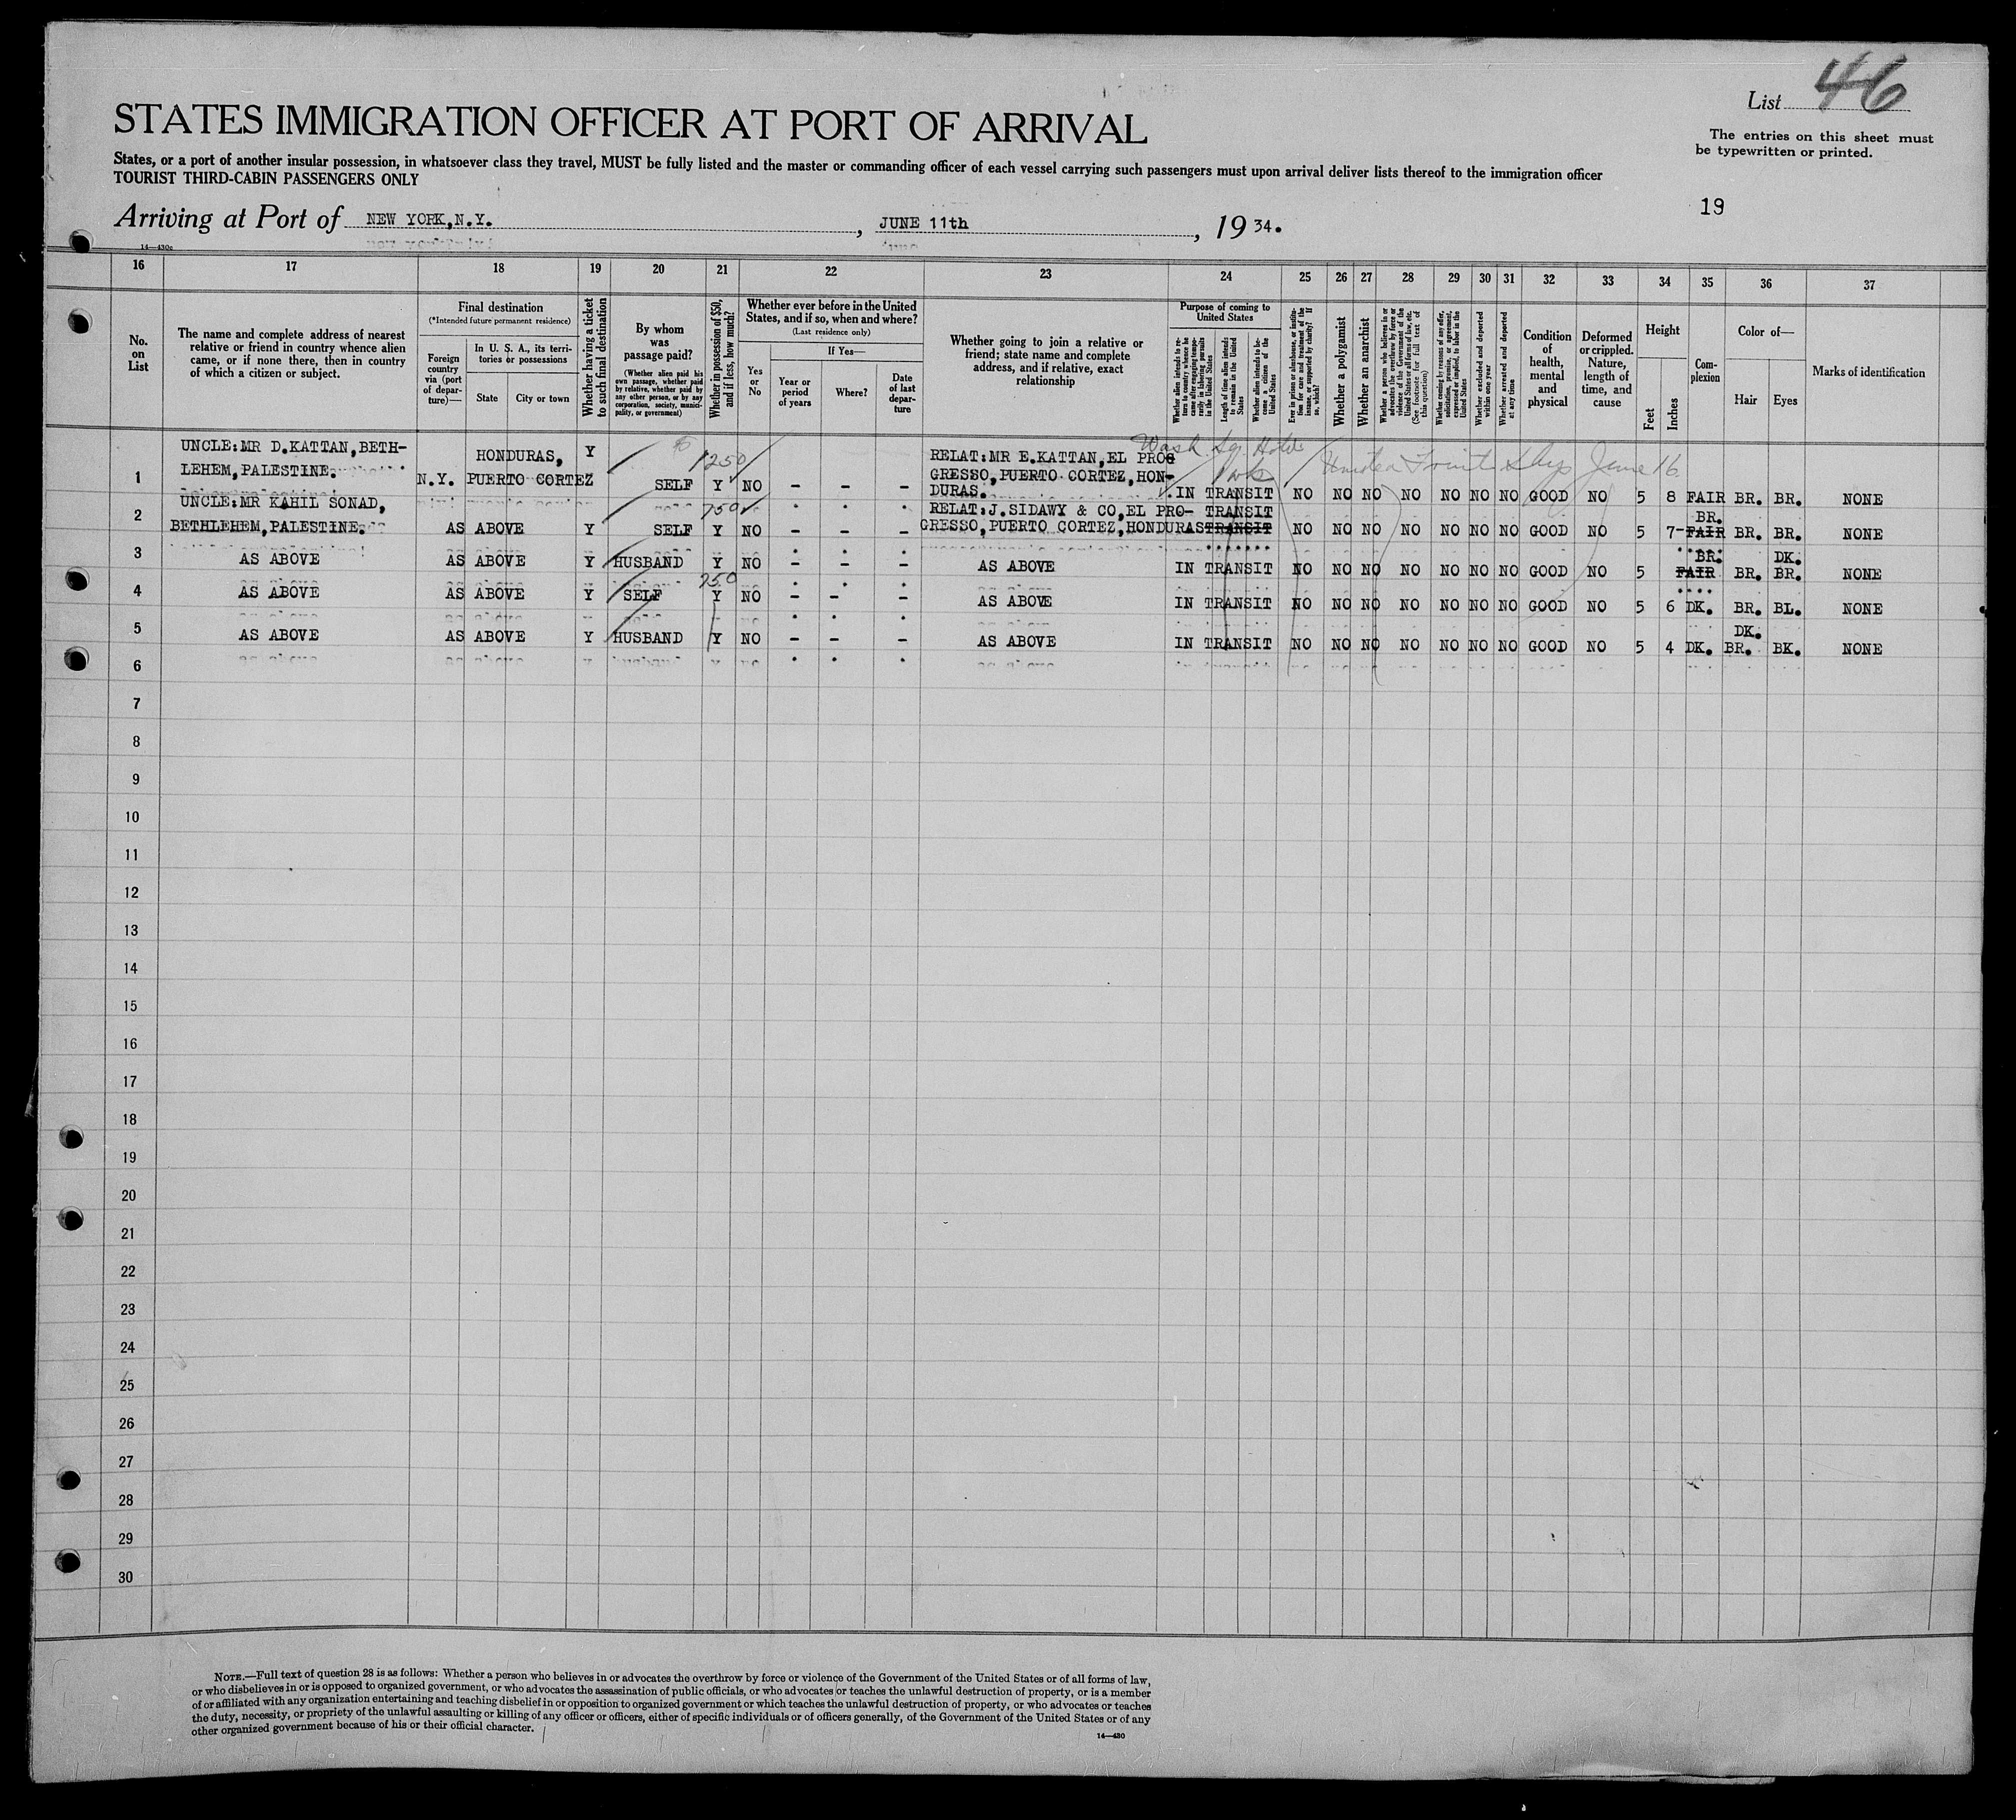 List 46
STATES IMMIGRATION OFFICER AT PORT OF ARRIVAL
The entries on this sheet must
be typewritten or printed.
States, or a port of another insular possession, in whatsoever class they travel, MUST be fully listed and the master or commanding officer of each vessel carrying such passengers must upon arrival deliver lists thereof to the immigration officer
TOURIST THIRD-CABIN PASSENGERS ONLY
19
Arriving at Port of NEW YORK,N.Y. , JUNE 11th , 19 34.
14—430c
16 17 18 19 20 21 22 23 24 25 26 27 28 29 30 31 32 33 34 35 36 37
No.
on
List
The name and complete address of nearest
relative or friend in country whence alien
came, or if none there, then in country
of which a citizen or subject.
Final destination
(*Intended future permanent residence)
Foreign
country
via (port
of depar-
ture)—
In U. S. A., its terri-
tories or possessions
State City or town
Whether having a ticket
to such final destination
By whom
was
passage paid?
(Whether alien paid his
own passage, whether paid
by relative, whether paid by
any other person, or by any
corporation, society, munici-
pality, or government)
Whether in possession of $50,
and if less, how much?
Whether ever before in the United
States, and if so, when and where?
(Last residence only)
Yes
or
No
If Yes—
Year or
period
of years
Where?
Date
of last
depar-
ture
Whether going to join a relative or
friend; state name and complete
address, and if relative, exact
relationship
Purpose of coming to
United States
Whether alien intends to re-
turn to country whence he
came after engaging tempo-
rarily in laboring pursuits
in the United States
Length of time alien intends
to remain in the United
States
Whether alien intends to be-
come a citizen of the
United States
Ever in prison or almshouse, or institu-
tion for care and treatment of the
insane, or supported by charity? If
so, which?
Whether a polygamist
Whether an anarchist
Whether a person who believes in or
advocates the overthrow by force or
violence of the Government of the
United States or all forms of law, etc.
(See footnote for full text of
this question)
Whether coming by reason of any offer,
solicitation, promise, or agreement,
expressed or implied, to labor in the
United States
Whether excluded and deported
within one year
Whether arrested and deported
at any time
Condition
of
health,
mental
and
physical
Deformed
or crippled.
Nature,
length of
time, and
cause
Height
Feet
Inches
Com-
plexion
Color of—
Hair Eyes
Marks of identification
Wash. Sq. Hotel
United Fruit Ship June 16
1 UNCLE:MR D.KATTAN,BETH-
LEHEM,PALESTINE. N.Y. HONDURAS,
PUERTO CORTEZ Y SELF 1250 Y NO - - - RELAT:MR E.KATTAN,EL PRO-
GRESSO,PUERTO CORTEZ,HON-
DURAS. IN TRANSIT NO NO NO NO NO NO NO GOOD NO 5 8 FAIR BR. BR. NONE
2 UNCLE:MR KAHIL SONAD,
BETHLEHEM,PALESTINE. AS ABOVE Y SELF 750 Y NO - - - RELAT:J.SIDAWY & CO,EL PRO- TRANSIT
GRESSO,PUERTO CORTEZ,HONDURAS TRANSIT NO NO NO NO NO NO NO GOOD NO 5 7 BR. FAIR BR. BR. NONE
3 AS ABOVE AS ABOVE Y HUSBAND Y NO - - - AS ABOVE IN TRANSIT NO NO NO NO NO NO NO GOOD NO 5 BR. FAIR BR. DK. BR. NONE
4 AS ABOVE AS ABOVE Y SELF 750 Y NO - - AS ABOVE IN TRANSIT NO NO NO NO NO NO NO GOOD NO 5 6 DK. BR. BL. NONE
5 AS ABOVE AS ABOVE Y HUSBAND Y NO - - - AS ABOVE IN TRANSIT NO NO NO NO NO NO NO GOOD NO 5 4 DK. DK. BR. BK. NONE
6
7
8
9
10
11
12
13
14
15
16
17
18
19
20
21
22
23
24
25
26
27
28
29
30
NOTE.—Full text of question 28 is as follows: Whether a person who believes in or advocates the overthrow by force or violence of the Government of the United States or of all forms of law,
or who disbelieves in or is opposed to organized government, or who advocates the assassination of public officials, or who advocates or teaches the unlawful destruction of property, or is a member
of or affiliated with any organization entertaining and teaching disbelief in or opposition to organized government or which teaches the unlawful destruction of property, or who advocates or teaches
the duty, necessity, or propriety of the unlawful assaulting or killing of any officer or officers, either of specific individuals or of officers generally, of the Government of the United States or of any
other organized government because of his or their official character.
14—430